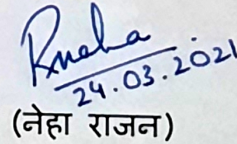 Rneha
24.03.2021
(नेहा राजन)